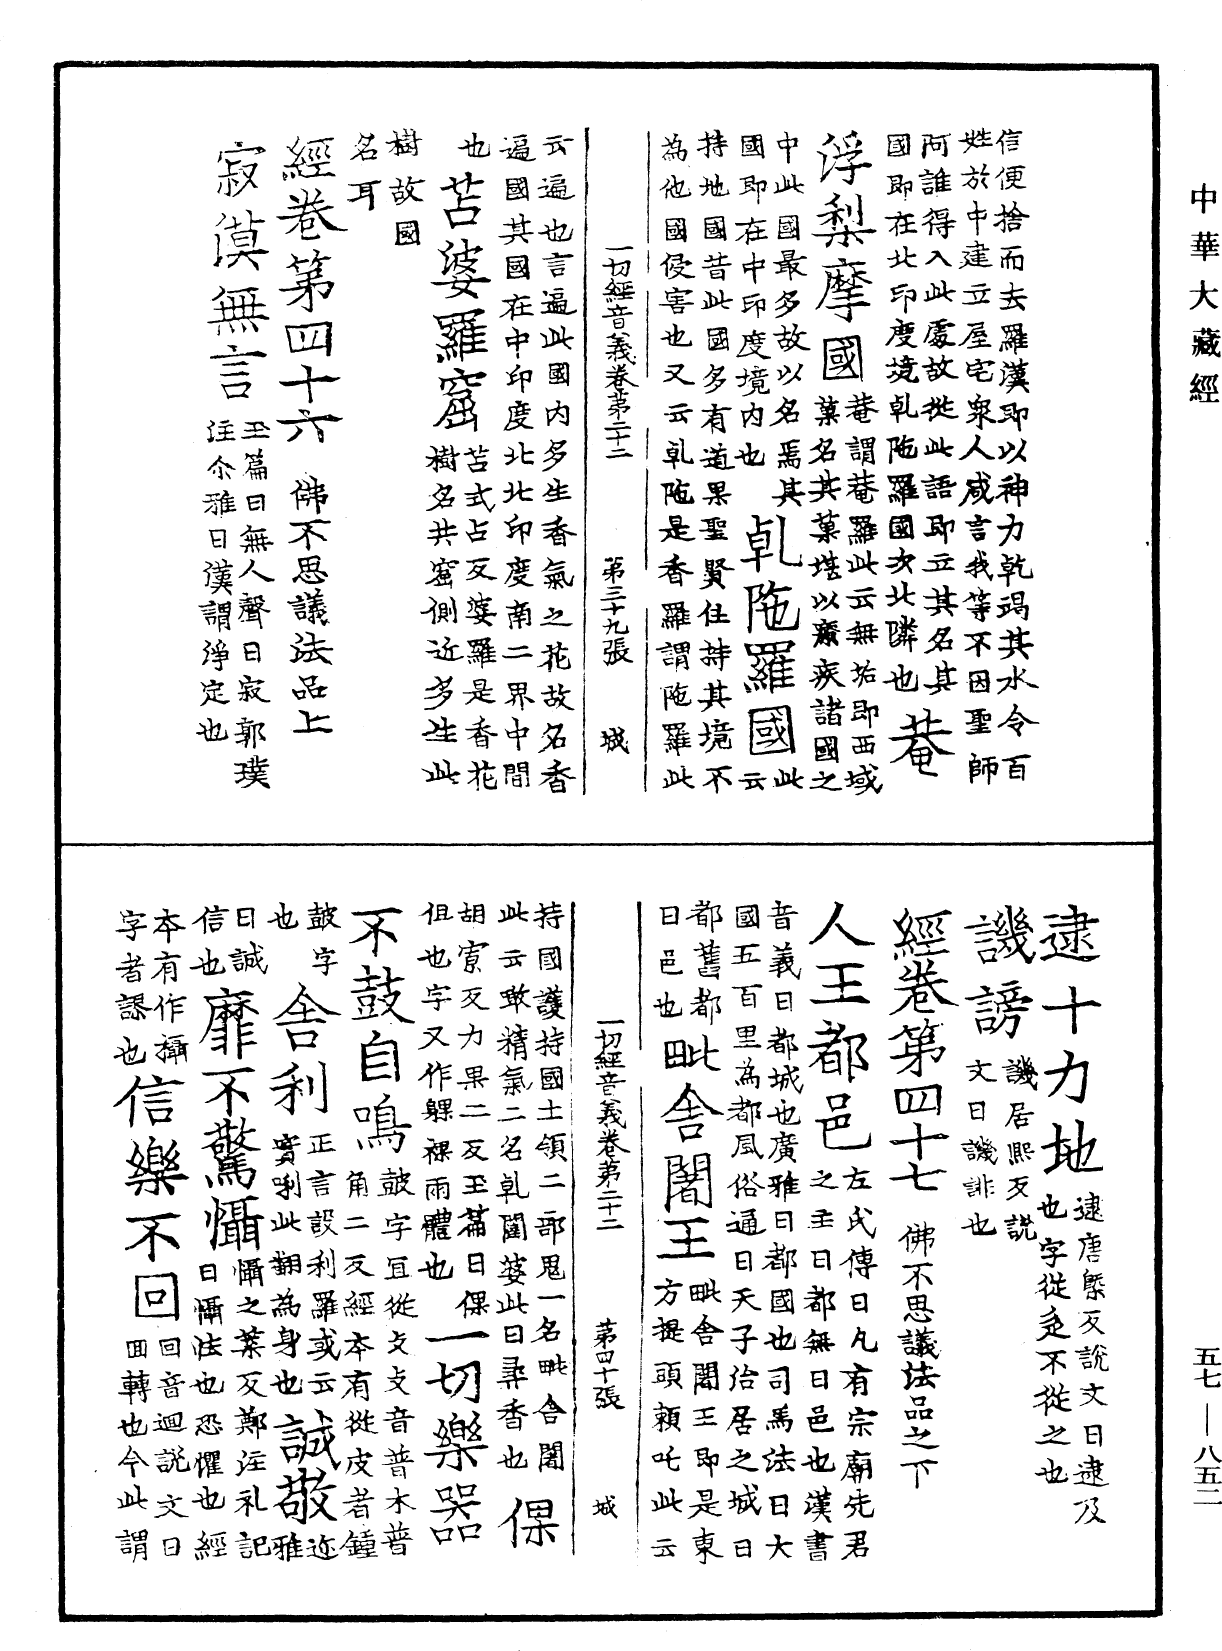 中華大藏經
信便捨而去羅漢即以神力乾竭其水令百
姓於中建立屋宅衆人咸言我等不因聖師
阿誰得入此處故從此語即立其名其
國即在北印度境乹陁羅國次北隣也 菴
浮梨摩國 菴謂菴羅此云無垢即西域
菓名其菓堪以療疾諸國之
中此國最多故以名焉其
國即在中印度境內也 乹陁羅國 此云
持地國昔此國多有道果聖賢住持其境不
為他國侵害也又云乹陁是香羅謂陁羅此
一切經音義卷第二十二 第三十九張 城
云遍也言遍此國內多生香氣之花故名香
遍國其國在中印度北北印度南二界中間
也 苫婆羅窟 苫式占反婆羅是香花
樹名共窟側近多生此
樹故國
名耳
經卷第四十六 佛不思議法品上
寂漠無言 玉篇曰無人聲曰寂郭璞
注尒雅曰漠謂淨定也
逮十力地 逮唐槩反說文曰逮及
也字從辵不從之也
譏謗 譏居熙反說
文曰譏誹也
經卷第四十七 佛不思議法品之下
人王都邑 左氏傳曰凡有宗廟先君
之主曰都無曰邑也漢書
音義曰都城也廣雅曰都國也司馬法曰大
國五百里為都風俗通曰天子治居之城曰
都舊都
曰邑也 毗舍闍王 毗舍闍王即是東
方提頭賴吒此云
持國護持國土領二部鬼一名毗舍闍
此云敢精氣二名乹闥婆此曰尋香也 倮
胡寡反力果二反玉篇曰倮
伹也字又作躶裸兩體也 一切樂器
不鼓自鳴 皷字宜從攴攴音普木普
角二反經本有從皮者鍾
皷字
也 舍利 正言設利羅或云迩
實唎此翻為身也 誠敬 雅
曰誠
信也 靡不驚懾 懾之葉反鄭注礼記
曰懾怯也恐懼也經
本有作攝
字者謬也 信樂不回 回音迴說文曰
回轉也今此謂
五七—八五二
一切經音義卷第二十二 第四十張 城